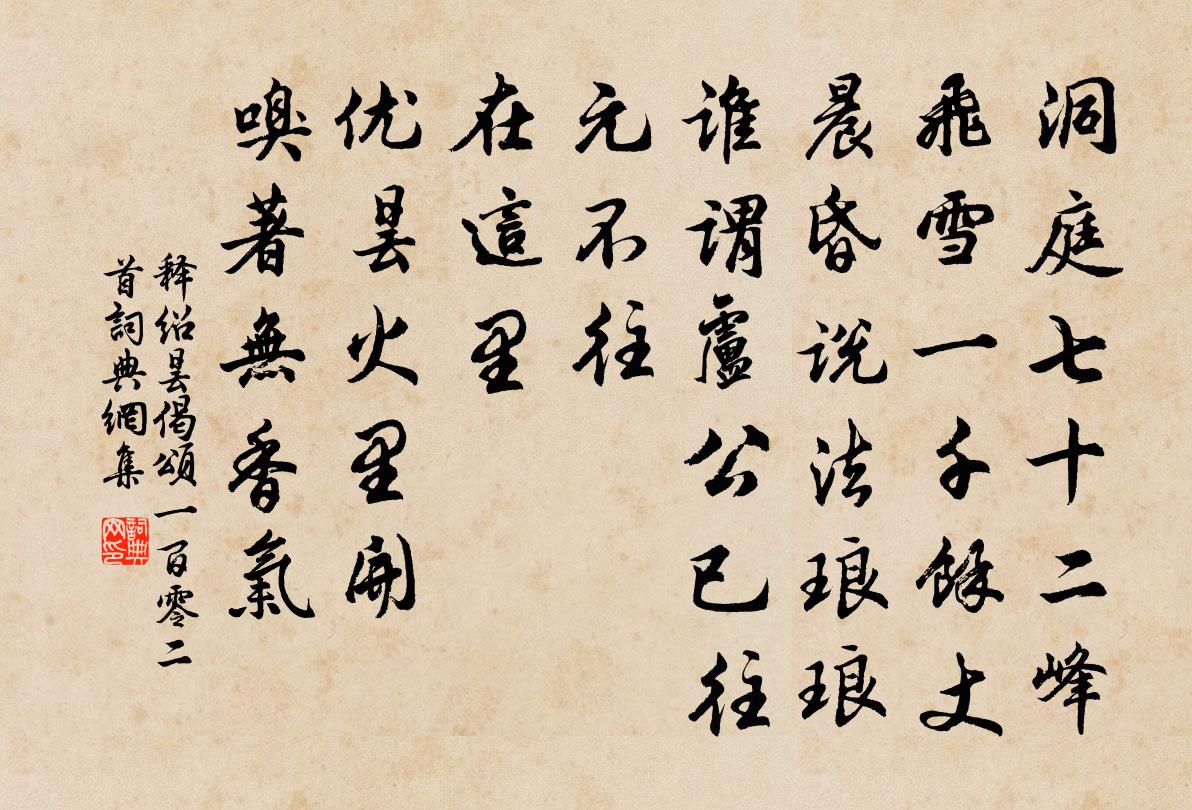 洞庭七十二峰
飛雪一千餘丈
晨昏説法琅琅
誰謂廬公已往
元不往
在這里
优曇火里開
嗅著無香氣
释绍曇偈頌一百零二
首詞典網集
詞典网印